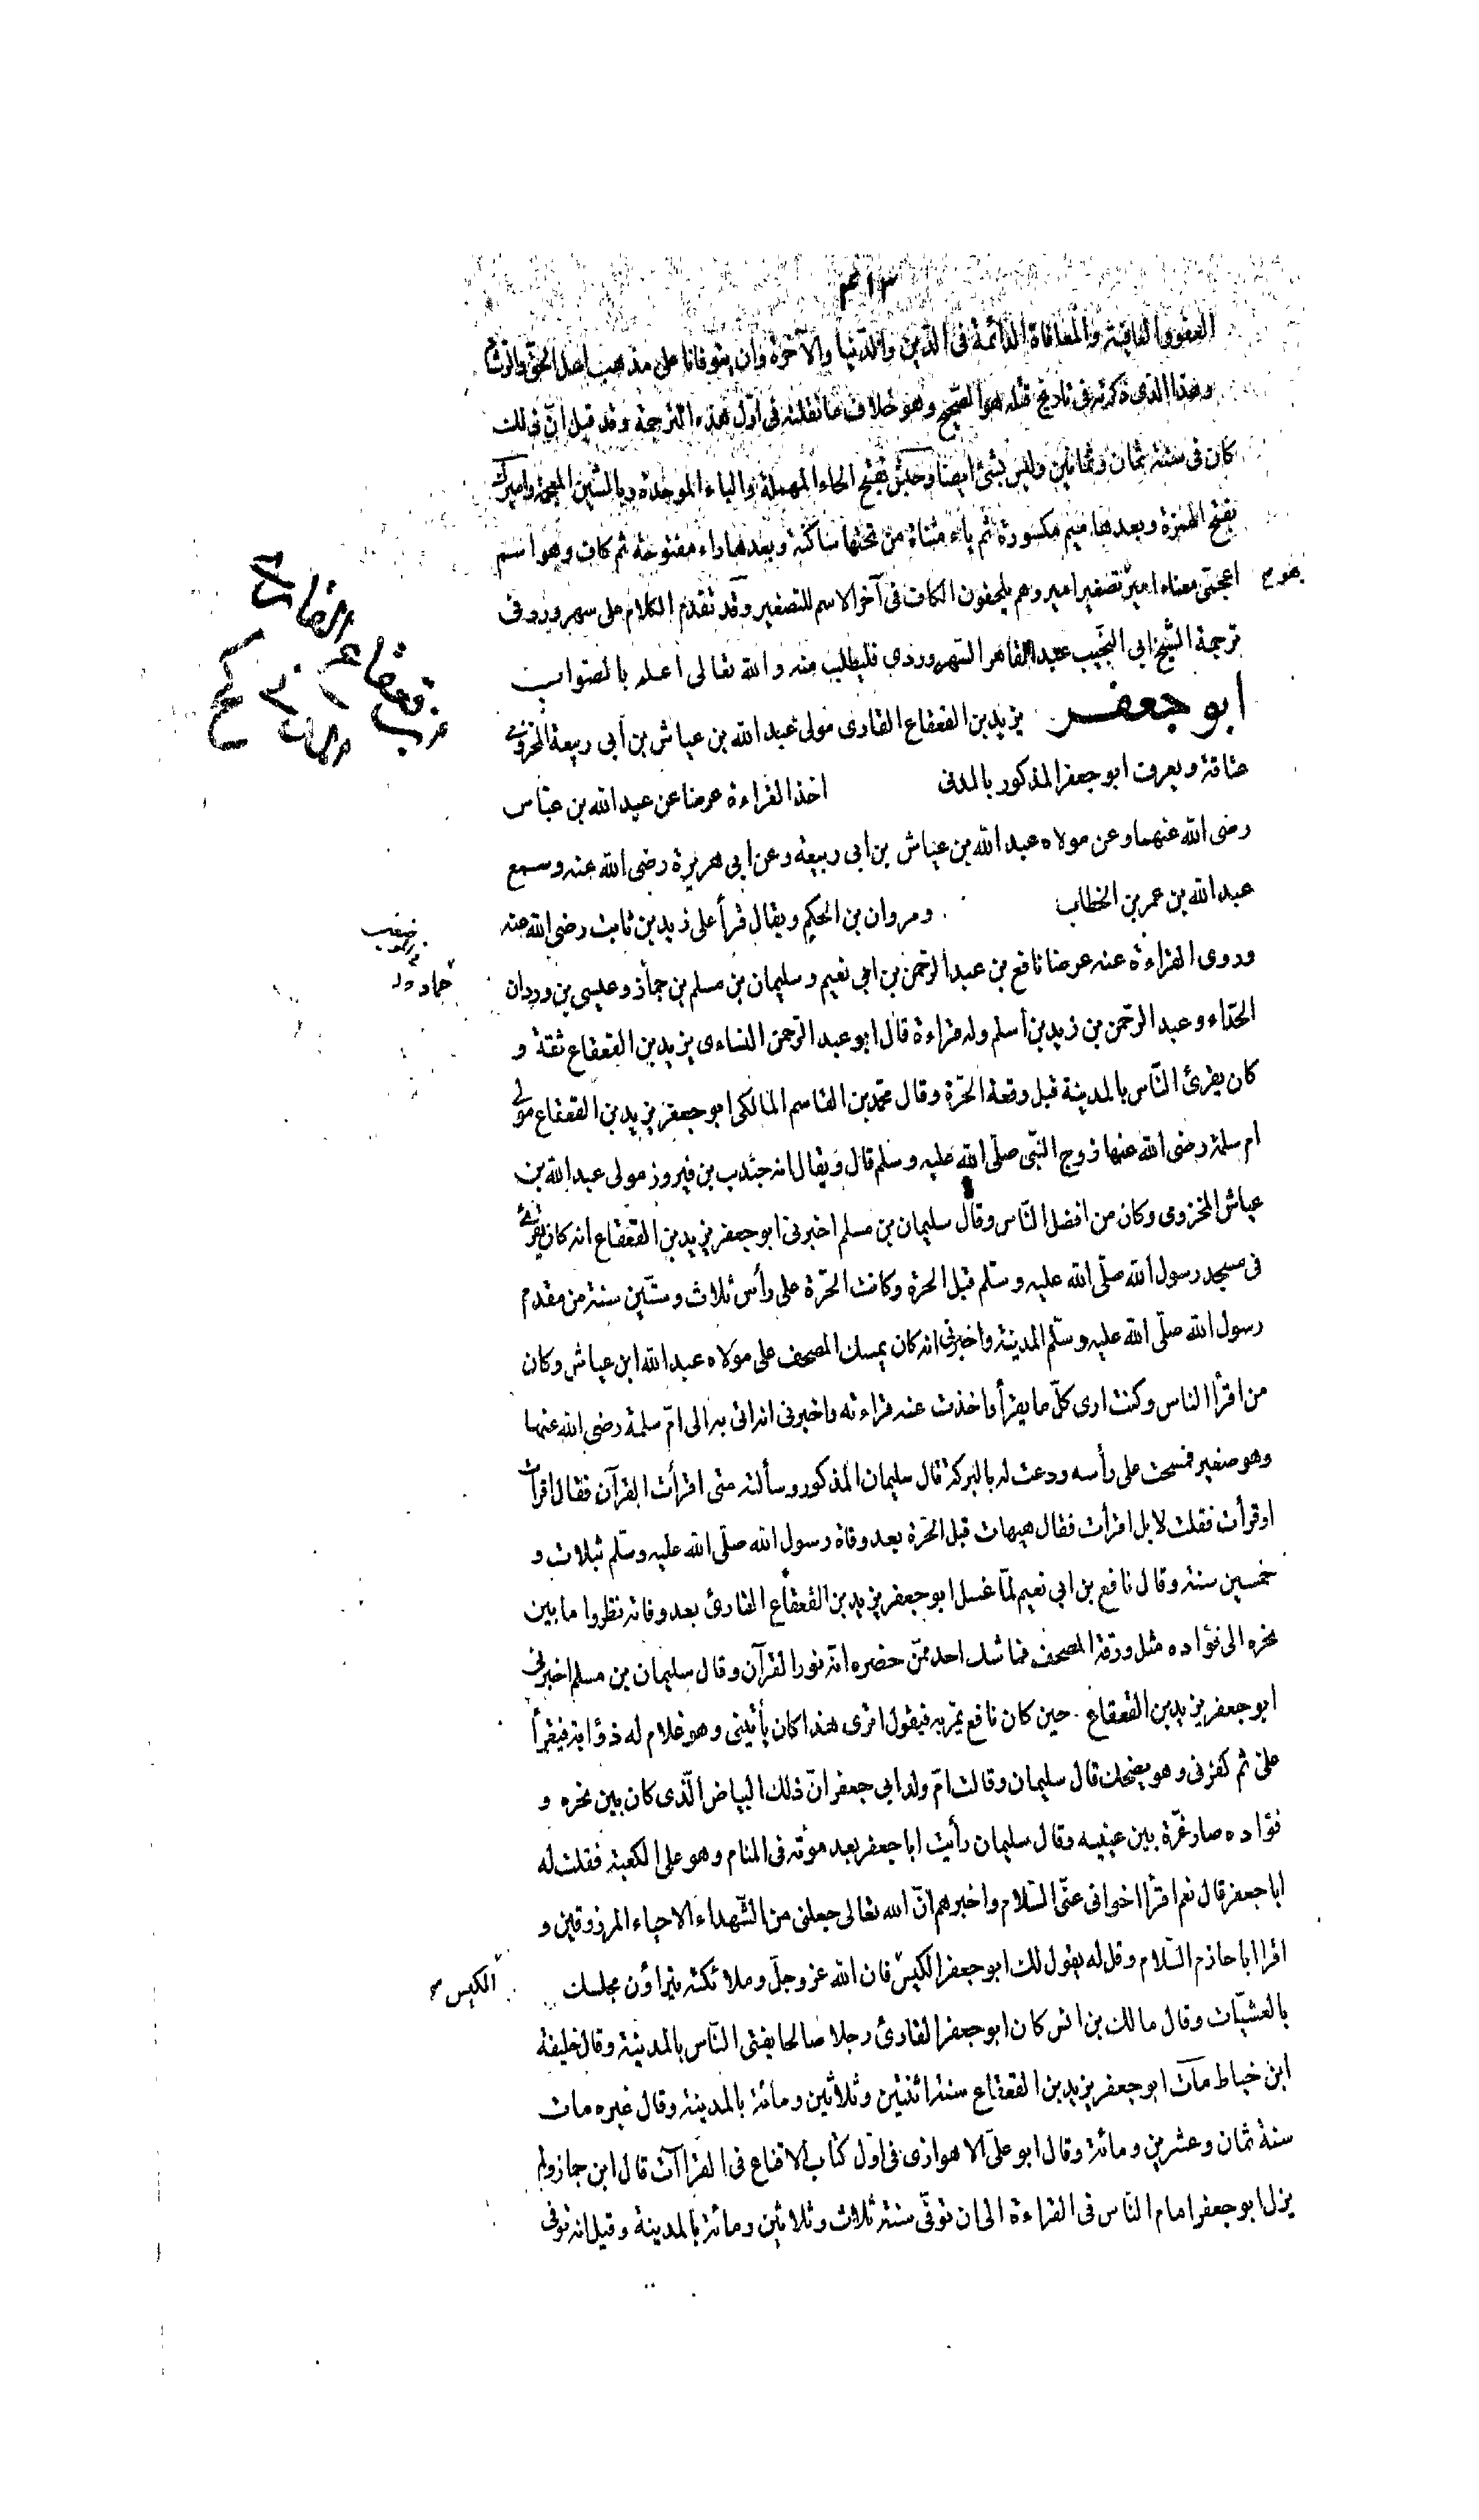 ٣١٣
العفو والعافية والمعافاة الدائمة فى الدين والدنيا والآخرة وان يتوفانا على مذهب اهل الحق والرشاد
وهذا الذى ذكرته فى تاريخ قتله هو الصحيح وهو خلاف ما نقلته فى اول هذه الترجمة وقد قيل انّ ذلك
كان فى سنة ثمان وثمانين وليس بشئ ايضا وحبش بفتح الحاء المهملة والباء الموحدة وبالشين المعجمة واميرك
بفتح الهمزة وبعدها ميم مكسورة ثم ياء مثناة من تحتها ساكنة وبعدها راء مفتوحة ثم كاف وهو اسم
اعجمى معناه امير تصغير امير وهم يلحقون الكاف فى آخر الاسم للتصغير وقد تقدم الكلام على سهرورد فى
ترجمة الشيخ ابى النجيب عبد القاهر السهروردى فليطلب منه والله تعالى اعلم بالصواب
ابو جعفر يزيد بن القعقاع القارى مولى عبد الله بن عياش بن أبى ربيعة المخزومى
عتاقة ويعرف ابو جعفر المذكور بالمدنى اخذ القراءة عرضا عن عبد الله بن عبّاس
رضى الله عنهما وعن مولاه عبد الله بن عياش بن ابى ربيعة وعن ابى هريرة رضى الله عنه وسمع
عبد الله بن عمر بن الخطاب ومروان بن الحكم ويقال قرأ على زيد بن ثابت رضى الله عنه
وروى القراءة عنه عرضا نافع بن عبد الرحمن بن ابى نعيم وسليمان بن مسلم بن جماز وعيسى بن وردان
الحذاء وعبد الرحمن بن زيد بن أسلم وله قراءة قال ابو عبد الرحمن النساءى يزيد بن القعقاع ثقة و
كان يقرئ النّاس بالمدينة قبل وقعة الحرّة وقال محمد بن القاسم المالكى ابو جعفر يزيد بن القعقاع مولى
ام سلمة رضى الله عنها زوج النبّى صلّى الله عليه وسلم قال ويقال انه جندب بن فيروز مولى عبد الله بن
عياش المخزومى وكان من افضل النّاس وقال سليمان بن مسلم اخبرنى ابو جعفر يزيد بن القعقاع انه كان يقرئ
فى مسجد رسول الله صلّى الله عليه وسلّم قبل الحرة وكانت الحرّة على رأس ثلاث وستّين سنة من مقدم
رسول الله صلّى الله عليه وسلّم المدينة واخبرنى انه كان يمسك المصحف على مولاه عبد الله ابن عياش وكان
من اقرأ الناس وكنت ارى كلّ ما يقرأ واخذت عنه قراءته واخبرنى انه اتى به الى امّ سلمة رضى الله عنها
وهو صغير فمسحت على رأسه ودعت له بالبركة قال سليمان المذكور وسألته متى اقرأت القرآن فقال اقرأت
او قرأت فقلت لا بل اقرأت فقال هيهات قبل الحرّة بعد وفاة رسول الله صلّى الله عليه وسلّم بثلاث و
خمسين سنة وقال نافع بن ابى نعيم لمّا غسل ابو جعفر يزيد بن القعقاع القارئ بعد وفاته نظروا ما بين
نحره الى فؤاده مثل ورقة المصحف فما شك احد ممّن حضره انّه نور القرآن وقال سليمان بن مسلم اخبرنى
ابو جعفر يزيد بن القعقاع حين كان نافع يمرّ به فيقول اترى هذا كان يأتينى وهو غلام له ذؤابة فيقرأ
علىّ ثم كفرنى وهو يضحك قال سليمان وقالت امّ ولد ابى جعفر انّ ذلك البياض الّذى كان بين نحره و
فؤاده صار غرّة بين عينيه وقال سليمان رأيت ابا جعفر بعد موته فى المنام وهو على الكعبة فقلت له
ابا جعفر قال نعم اقرأ اخوانى عنّى السّلام واخبرهم انّ الله تعالى جعلنى من الشّهداء الاحياء المرزوقين و
اقرا ابا حازم السّلام وقل له يقول لك ابو جعفر الكيس فان الله عز وجلّ وملائكته يتراؤن مجلسك
الكيس
بالعشيّات وقال مالك بن انس كان ابو جعفر القارئ رجلا صالحا يفتى النّاس بالمدينة وقال خليفة
ابن خياط مات ابو جعفر يزيد بن القعقاع سنة اثنتين وثلاثين ومائة بالمدينة وقال غيره مات
سنة ثمان وعشرين ومائة وقال ابو علىّ الاهوازى فى اوّل كتاب الاقناع فى القراآت قال ابن جماز ولم
يزل ابو جعفر امام النّاس فى القراءة الى ان توفّى سنة ثلاث وثلاثين ومائة بالمدينة وقيل انه توفى